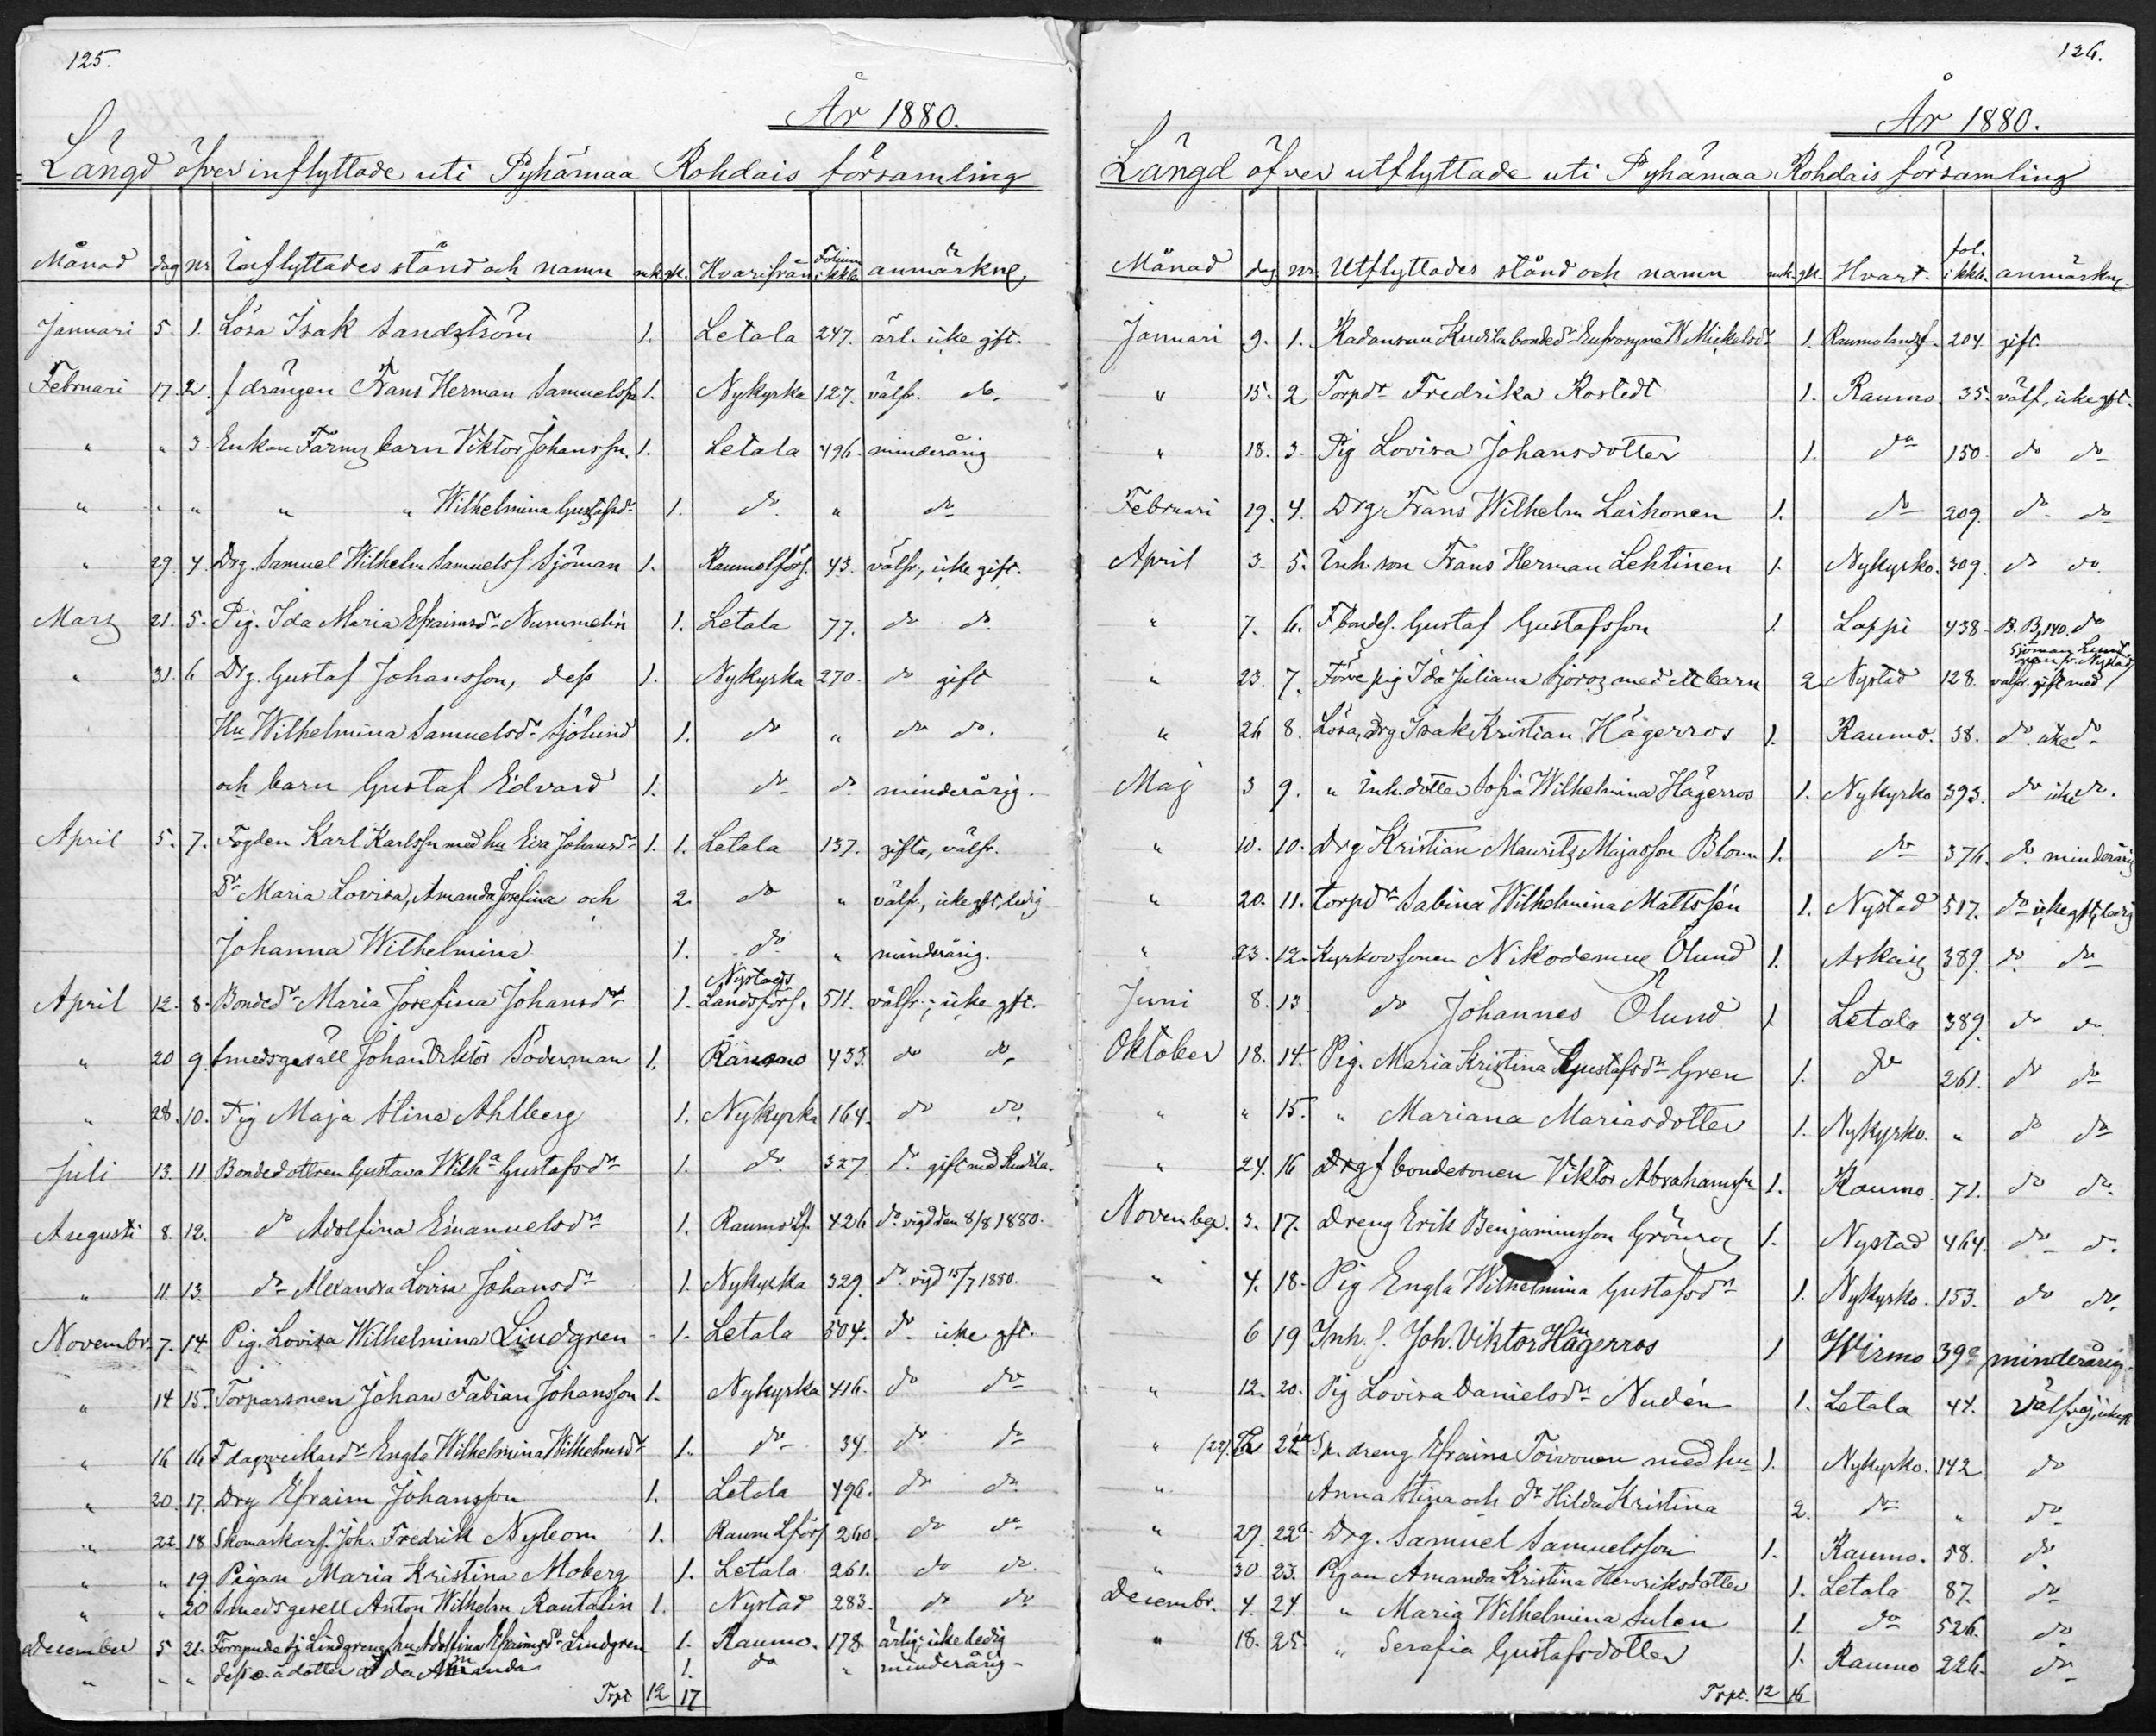 125.
År 1880.
Längd öfver inflyttade uti Pyhämaa Rohdais församling
Månad dag nr Inflyttades stånd och namn mk. qk. Hvarifrån Folium i kkb. anmärkng
Januari 5 1. Lösa Isak Sandström 1. Letala 247. ärl. icke gift.
Februari 17. 2. f drängen Frans Herman Samuelssn 1. Nykyrka 127. välfr. do
" " 3. Enkan barn Viktor Johanssn. 1. Letala 496. minderårig
" " " " " Wilhelmina Gustafsdr 1. do " do
" 29. 4. Drg. Samuel Wilhelm Samuelss Sjöman 1. Raumolförs. 43. välfr., icke gift.
Mars 21. 5. Pig. Ida Maria Efraimsdr Nummelin 1. Letala 77. do do
" 31. 6 Drg. Gustaf Johansson, dess 1. Nykyrka 270. do gift
Hu Wilhelmina Samuelsdr Sjölund 1. do " do do.
och barn Gustaf Edvard 1. do do minderårig.
April 5. 7. Fogden Karl Karlssn med hu Eva Johansdr 1. 1. Letala 137. gifta, välfr.
Dr Maria Lovisa, Amanda Josefina och 2. do " välfr., icke gft, ledig
Johanna Wilhelmina 1. do " minderårig.
April 12. 8. Bondedr Maria Josefina Johansdr 1. Nystads Landsförs. 511. välfr., icke gft.
" 20 9. Smedsgesäll Johan Viktor Söderman 1. Raumo 433. do do
" 28. 10. Pig Maja Stina Ahlberg 1. Nykyrka 164. do do
Juli 13. 11. Bondedottren Gustava Wilha Gustafsdr 1. do 327 do gift med Kudila.
Augusti 8. 12. do Adolfina Emanuelsdr 1. Raumo Lf. 426 do vigd den 8/8 1880.
" 11. 13. do Alexandra Lovisa Johansdr 1. Nykyrka 329. do vigd 15/7 1880.
Novembr. 7. 14. Pig. Lovisa Wilhelmina Lindgren 1. Letala 504. do icke gft.
" 14 15. Torparsonen Johan Fabian Johansson 1. Nykyrka 416. do do
" 16 16 F Engla Wilhelmina Wilhelmsdr 1. do 34. do do
" 20. 17. Drg Efraim Johansson 1. Letala 496. do do
" 22. 18 Skomakars. Joh. Fredrik Nybom 1. Raum Lförs 260. do do
" " 19. Pigan Maria Kristina Moberg 1. Letala 261. do do
" " 20 Smedsgesell Anton Wilhelm Rautalin 1. Nystad 283. do do
December 5 21. sj Lindgrens hu Adolfina Efraimsdr Lindgren 1. Raumo. 178. ärlig icke ledig
" " " dess oä dotter Ida Amanda 1. do " minderårig
Trpt 12 17
126.
År 1880.
Längd öfver utflyttade uti Pyhämaa Rohdais församling
Månad dag nr. Utflyttades stånd och namn mk. qk. Hvart. fol. i kkb. anmärkng.
Januari 9. 1. Radansuu Kudila bondedr Eufrosyne W Mickelsdr 1. Raumo landsf. 204 gift.
" 15. 2 Torpdr Fredrika Rostedt 1. Raumo. 35. välf., icke gft.
" 18. 3. Pig Lovisa Johansdotter 1. do 150. do do
Februari 19. 4. Drg Frans Wilhelm Laihonen 1. do 209. do do
April 3. 5. Inh. son Frans Herman Lehtinen 1. Nykyrko. 309. do do
" 7. 6. F bondes. Gustaf Gustafsson 1. Lappi 438. B. B. 140. do
" 23. 7. Förre pig Ida Juliana Sjöros med ett barn 2 Nystad 128. välfr. gift med Sjöman fr. Nystad
" 26 8. Lösa, drg Isak Kristian Hägerros 1. Raumo. 38. do icke do
Maj 3 9. " Inh. dotter Sofia Wilhelmina Hägerros 1. Nykyrko 393. do icke do.
" 10. 10. Drg Kristian Maurits Majasson Blom 1. do 376. do minderårig
" 20. 11. torpdr Sabina Wilhelmina Mattssén 1. Nystad 517. do icke gft, ledig
" 23. 12. Kyrkov. sonen Nikodemus Ölund 1. Askais 389. do do
Juni 8. 13 do Johannes Ölund 1. Letala 389. do do
Oktober 18. 14. Pig. Maria Kristina Gustafsdr Gren 1. do 261. do do
" " 15. " Mariana Mariasdotter 1. Nykyrko. " do do
" 24. 16 Drg f bondesonen Viktor Abrahamssn 1. Raumo. 71. do do
November. 3. 17. Dreng Erik Benjaminsson Grönros 1. Nystad 464. do do
" 4. 18. Pig Engla Wilhelmina Gustafsdr 1. Nykyrko. 153. do do
6 19 Inh. s. Joh. Viktor Hägerros 1 Wirmo 39 minderårig.
" 12. 20. Pig Lovisa Danielsdr Nudén 1. Letala 44. välfrejd
" (22) 21 Sp. dreng Efraim Toivonen med hu 1. Nykyrko. 142 do
" Anna Stina och dr Hilda Kristina 2. do " do
" 29. 22a. Drg. Samuel Samuelsson 1. Raumo. 58. do
" 30. 23. Pigan Amanda Kristina Henriksdotter 1. Letala 87. do
Decembr. 4. 24. " Maria Wilhelmina Sulen 1. do 526. do
" 18. 25. " Serafia Gustafsdotter 1. Raumo 226. do
Trpt. 12 16